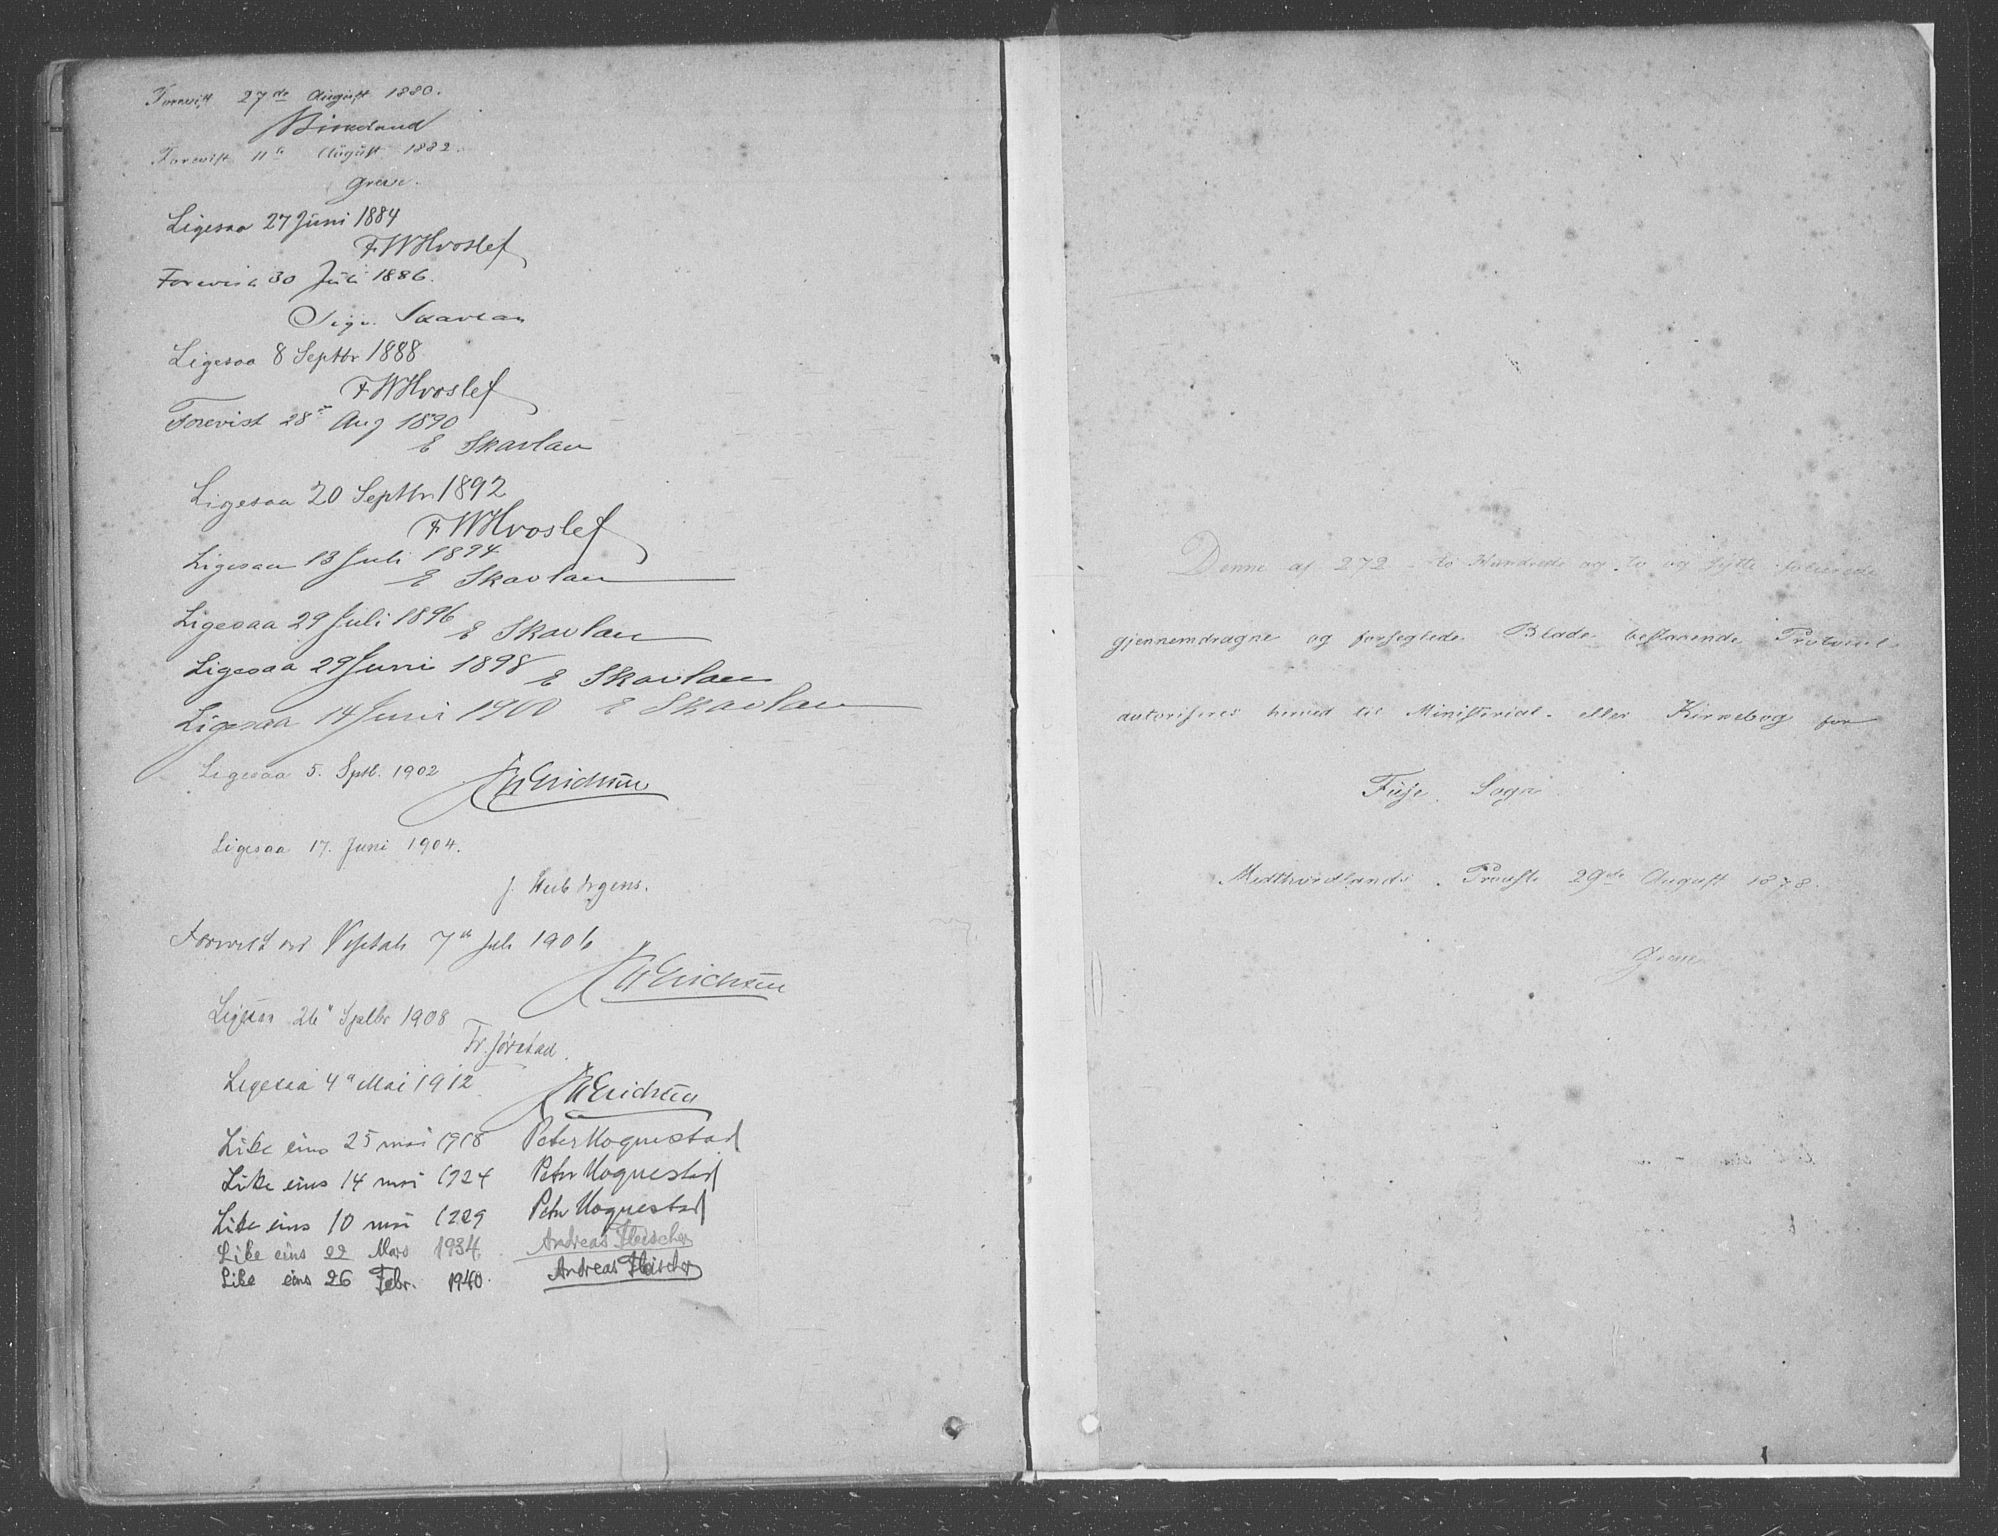 Forevist 27de August 1880.
Birkeland
Forevist 11te August 1882.
Greve.
Ligesaa 27 Juni 1884
FWHvoslef
Forevist 30 Juli 1886.
Skavlan
Ligesaa 8 Septbr 1888
FWHvoslef
Forevist 28de Aug 1890
E Skavlan
Ligesaa 20 Septbr 1892
FWHvoslef
Ligesaa 13 Juli 1894
E Skavlan
Ligesaa 29 Juli 1896 E Skavlan
Ligesaa 29 Juni 1898 E Skavlan
Ligesaa 14 Juni 1900 E Skavlan
Ligesaa 5. Sptb. 1902 Erichsen
Ligesaa 17. Juni 1904.
J.
Forevist ved 7de Juli 1906
Erichsen
Ligesaa 26" Septbr 1908
Fr. Jørstad.
Ligesaa 4de Mai 1912 Erichsen
Like eins 25 mai 1918 Peter Hognestad
Like eins 14 mai 1924 Peter Hognestad
Like eins 10 mai 1929 Peter Hognestad
Like eins 22 Mars 1934 Andreas Fleischer
Like eins 26 Febr. 1940. Andreas Fleischer
Denne af 272 - to Hundrede og to og sytti folierede
gjennemdragne og forseglede Blade bestaaende Protocol
autoriseres herved til Ministerial- eller Kirkebog for
Fuse Sogn.
Midthordlands Provsti 29de August 1878.
Greve